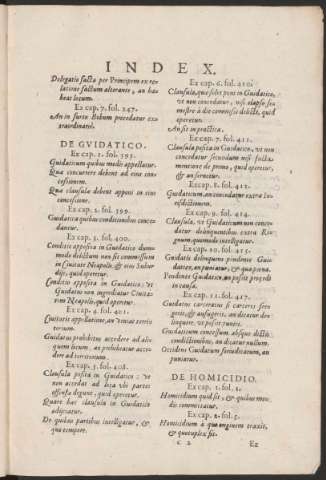 INDEX.
Delegatio facta per Principem ex re
latione factum alterante, an ha
beat locum.
Ex cap. 7. fol. 247.
An in furto Bobum procedatur ex
traordinariè.
DE GVIDATICO.
Ex cap. 1. fol. 395.
Guidaticum quibus modis appellatur.
Quæ concurrere debent ad eius con
cessionem.
Quæ clausula debent apponi in eius
concessione.
Ex cap. 2. fol. 399.
Guidatica quibus conditionibus conce
dantur.
Ex cap. 3. fol. 400.
Conditio apposita in Guidatico dum
modo delictum non sit commissum
in Ciuitate Neapolis, & eius Subur
bijs, quid operetur.
Conditio apposita in Guidatico, vt
Guidatus non ingrediatur Ciuita
tem Neapolis, quid operetur.
Ex cap. 4. fol. 401.
Ciuitatis appellatione, an veniat territo
rium.
Guidatus prohibitus accedere ad ali
quem locum, an prohibeatur acce
dere ad territorium.
Ex cap. 5. fol. 408.
Clausula posita in Guidatico: vt
non accedat ad loca vbi partes
offensæ degunt, quid operetur.
Quare hæc clausula in Guidatico
adijciatur.
De quibus partibus intelligatur, &
quo tempore.
Ex cap. 6. fol. 410.
Clausula, quæ solet poni in Guidatico,
vt non concedatur, nisi elapso se
mestre à die commissi delicti, quid
operetur.
An sit in practica.
Ex cap. 7. fol. 411.
Clausula posita in Guidatico, vt non
concedatur secundum nisi
de primo, quid operetur,
& an seruetur.
Ex cap. 8. fol. 412.
Guidaticum, an concedatur extra Iu
risdictionem.
Ex cap. 9. fol. 414.
Clausula, vt Guidaticum non conce
datur delinquentibus extra Re
gnum, quomodo intelligatur.
Ex cap. 10. fol. 415.
Guidatus delinquens pendente Gui
datico, an puniatur, & qua pœna.
Pendente Guidatico, an possit procedi
in causa.
Ex cap. 11. fol. 417.
Guidatus carceratus si carceres fre
gerit, & aufugerit, an dicatur de
linquere, vt possit puniri.
Guidaticum concessum absque dictis
conditionibus, an dicatur nullum.
Occidens Guidatum secundum, an
puniatur.
DE HOMICIDIO.
Ex cap. 1. fol. 1.
Homicidium quid sit, & quibus mo
dis committatur.
Ex cap. 2. fol. 5.
Homicidium à quo originem traxit,
& quotuplex sit.
c 2 Ex